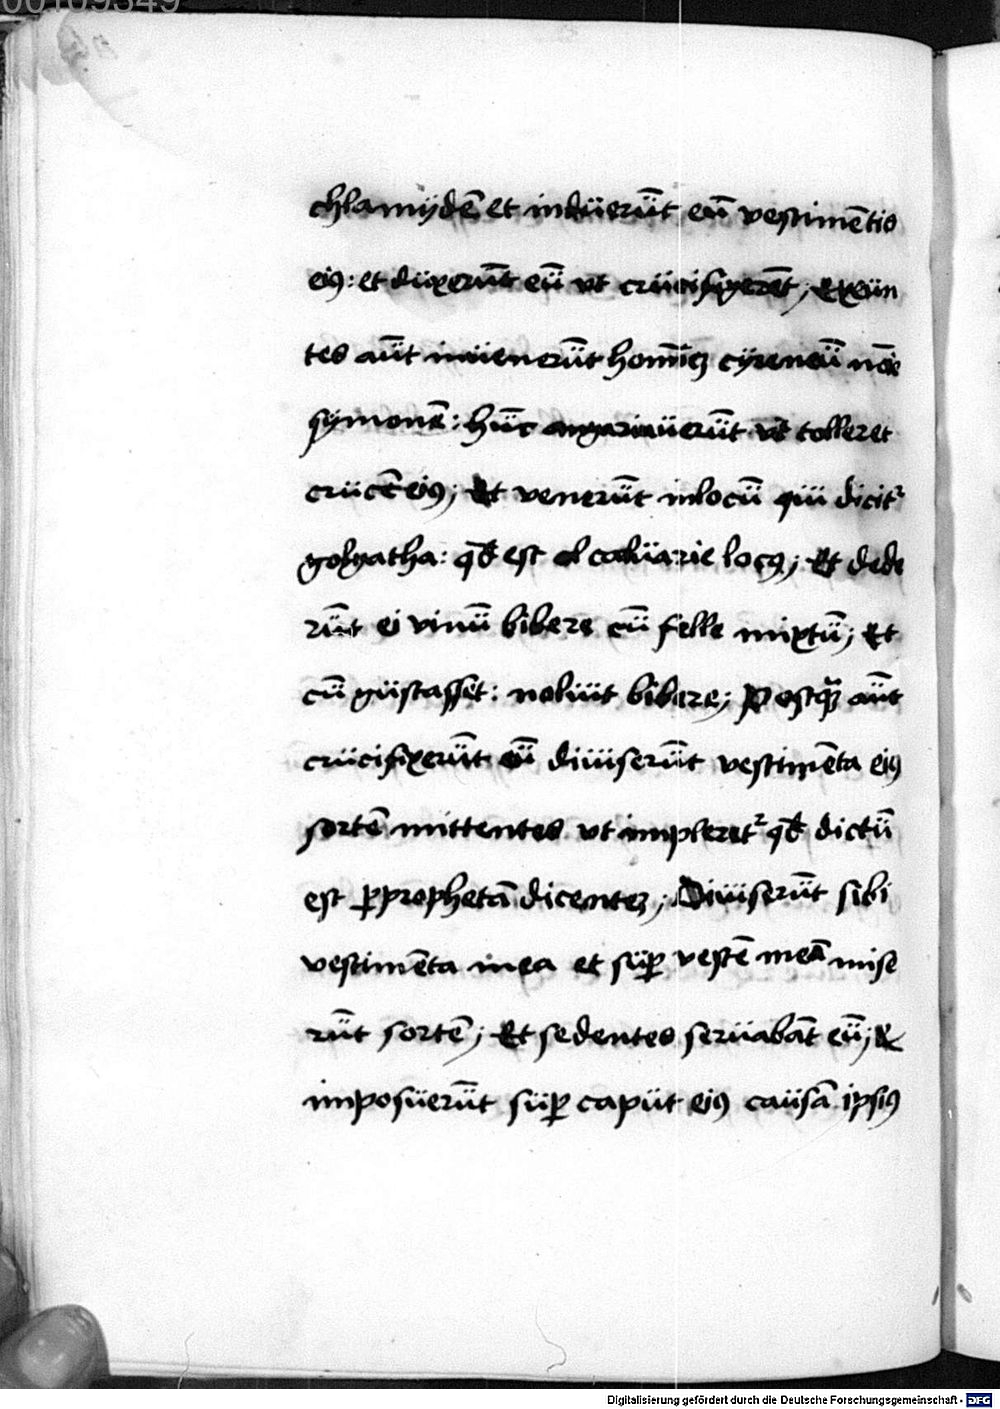 00109349
chlamydē et induerūt eū vestimētis
eiꝰ: et duxerūt eū vt crucifixerēt; Exeun
tes aūt inuenerūt homīeꝫ cyreneū noīe
symonē: hūc angariauerūt vt tolleret
crucē eiꝰ; Et venerūt in locū qui dicitᷣ
golgatha: qd̄ est caluarie locꝰ; Et dede
rūt ei vinū bibere cū felle mixtū; Et
cū gustasset: noluit bibere; Postqᷓ aūt
crucifixerūt eū diuiserūt vestimēta eiꝰ
sortē mittentes vt impleretᷣ qd̄ dictū
est ꝑ prophetā dicenteꝫ; Diuiserūt sibi
vestimēta mea et suꝑ vestē meā mise
rūt sortē; Et sedentes seruabāt eū; &
imposuerūt suꝑ caput eiꝰ causā ipsiꝰ
Digitalisierung gefördert durch die Deutsche Forschungsgemeinschaft - DFG